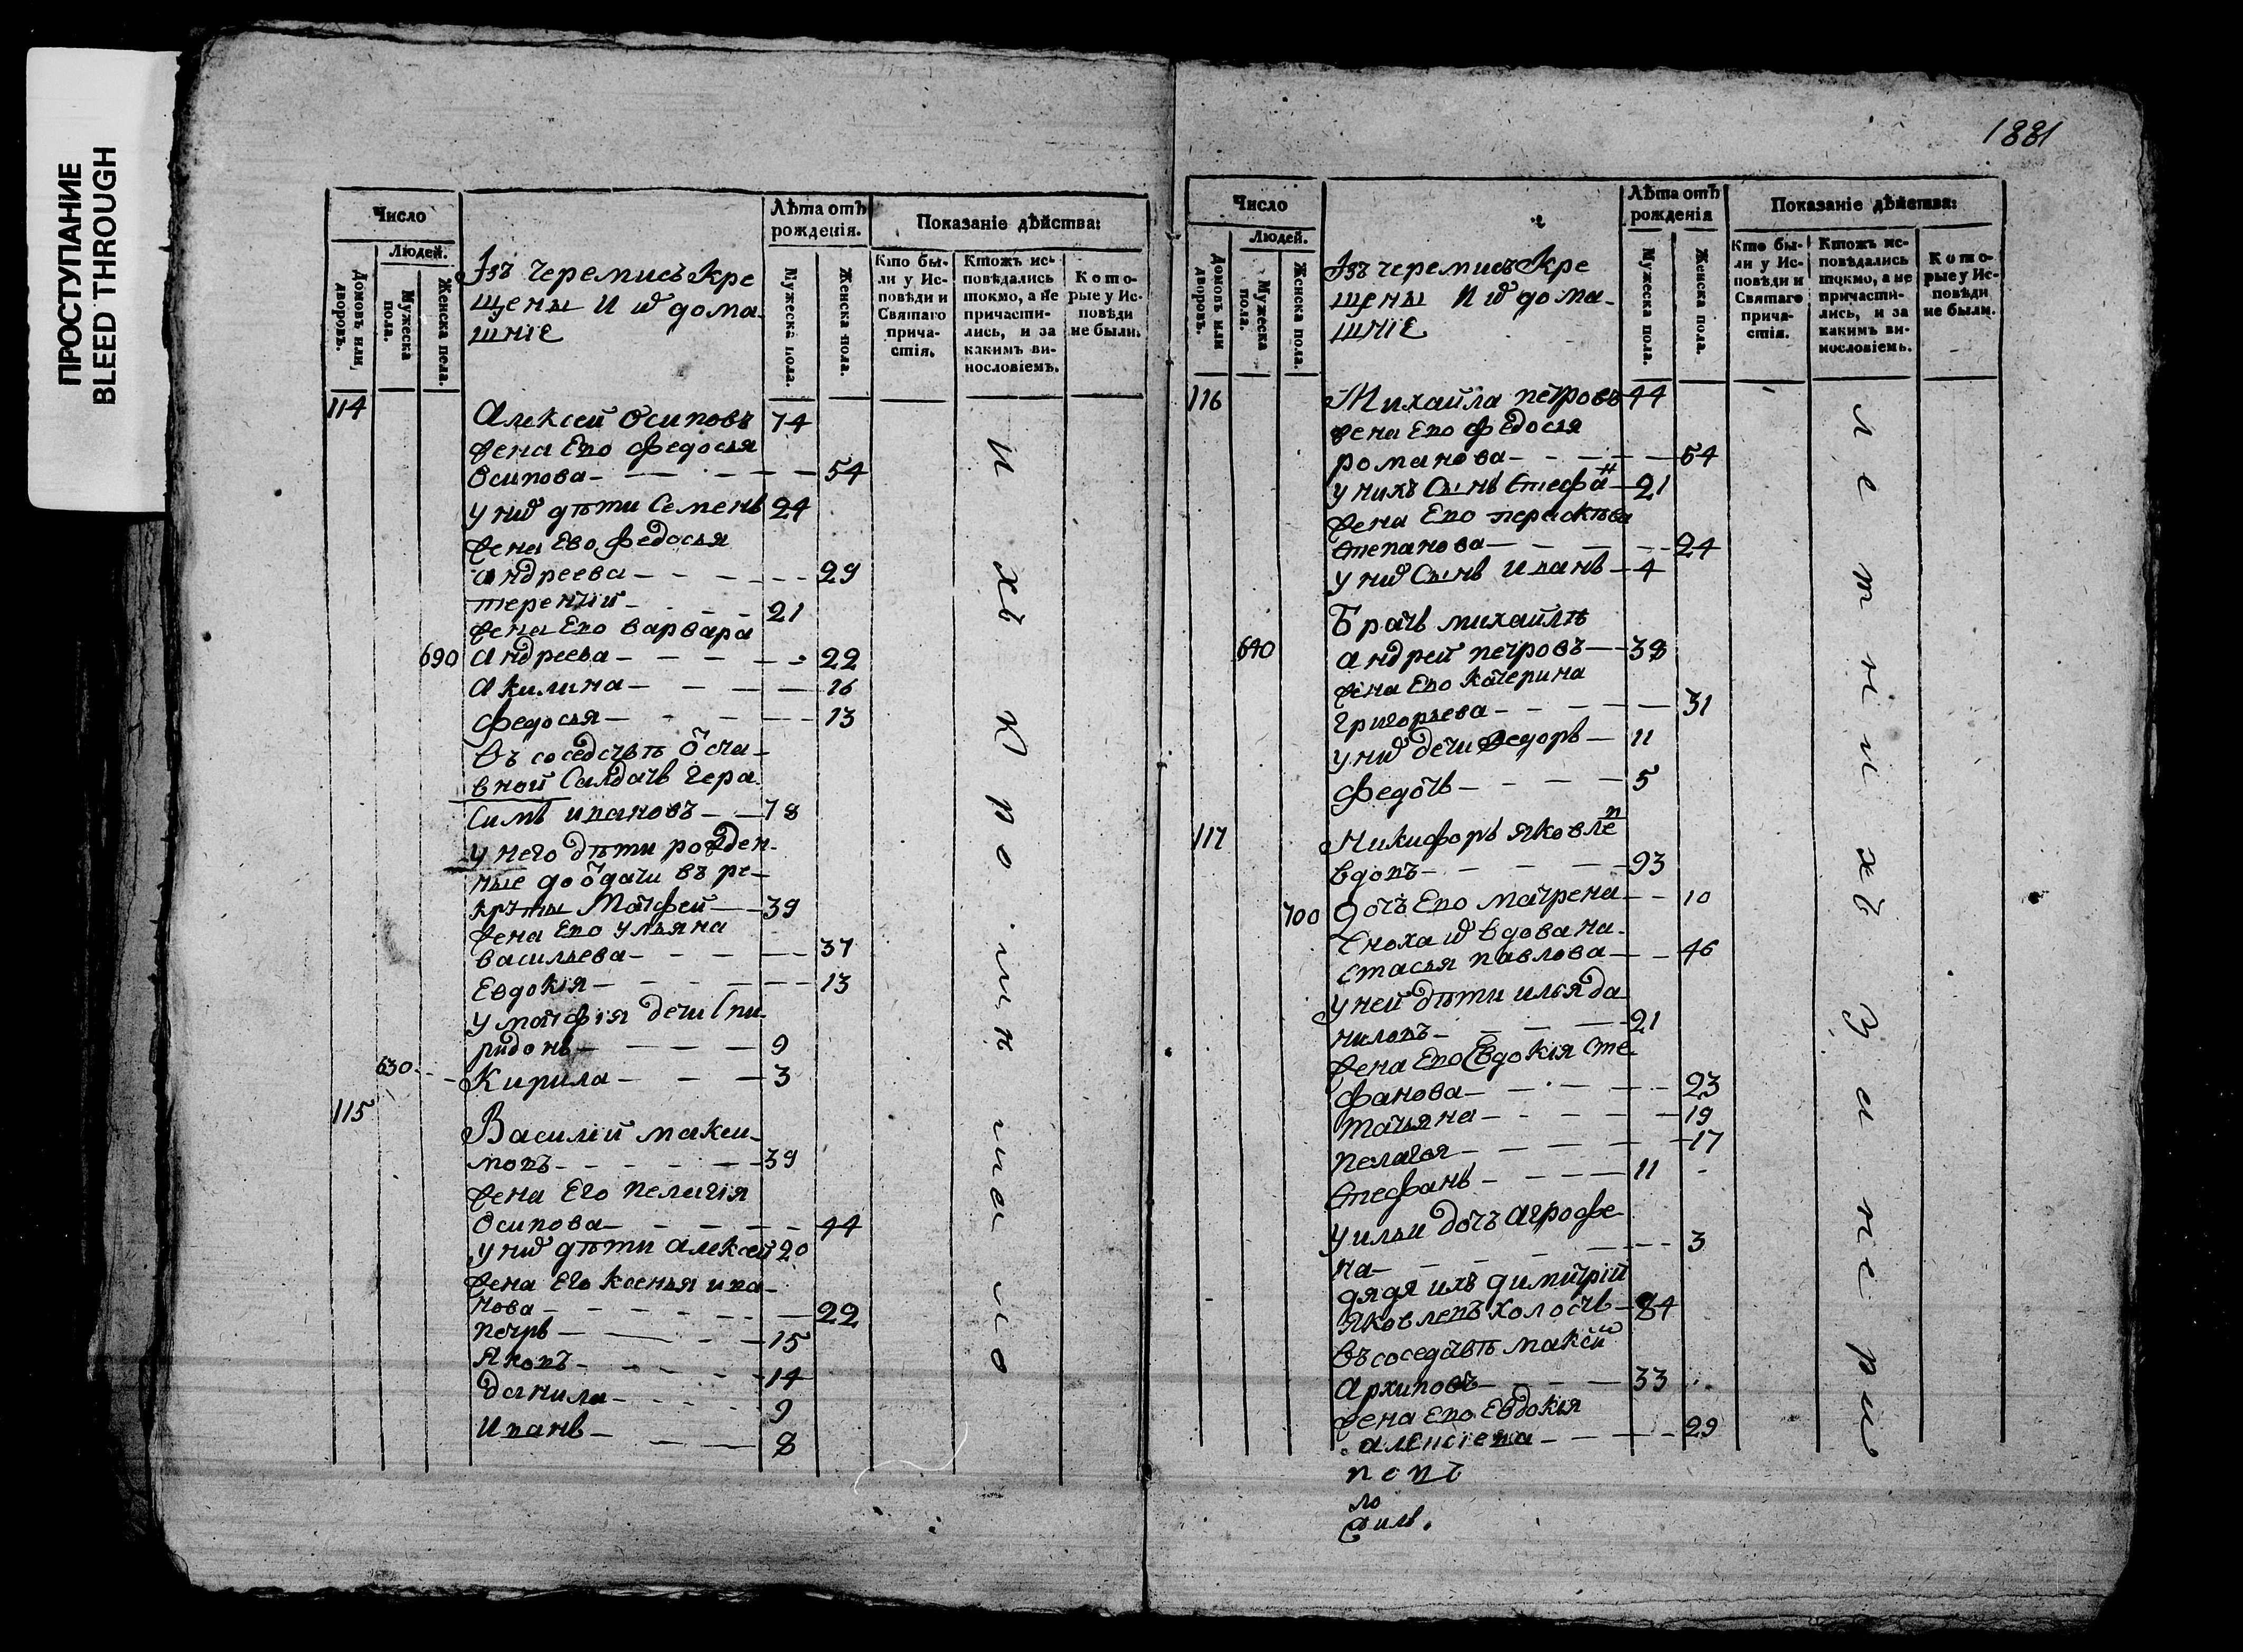 ПРОСТУПАНИЕ
BLEED THROUGH
Число
Людей.
Домовъ или дворовъ.
Мужеска пола.
Женска пола.
Ізъ черемисъ кре
щены и ѿ дома
шніе
Лѣта отъ рожденія.
Мужеска пола.
Женска пола.
Показаніе дѣйства:
Кто бы-
ли у Ис-
повѣди и
Святаго
прича-
стія.
Ктожъ ис-
повѣдались
токмо, а не
причасти-
лись, и за
какимъ ви-
нословіемъ.
Кото-
рые у Ис-
повѣди
не были.
114 Алексей Осиповъ 74
жена Ево Федосья
Осипова - - - 54
у ниѯ дѣти Семенъ 24
жена Ево Федосья
андреева - - - 29
терентій - - - 21
жена Ево варвара
690 андреева - - - 22
акилина - - - 16
федосья - - - 13
въ соседствѣ ѿста
вной салдатъ гера
симъ ивановъ - - 78
у него дѣти рожден
ные до ѿдачи въ ре
круты Матфей - - 39
жена Ево ульяна
васильева - - - 37
Евдокія - - - 13
у матфія дети спи
ридонъ - - - 9
630 Кирила - - - 3
115 Василий макси
мовъ - - - 39
жена Его пелагія
Осипова - - - 44
у ниѯ дѣти алексей 20
жена Его ксенья ива
нова - - - 22
петръ - - - 15
Яковъ - - - 14
данила - - - 9
Иванъ - - - 8
1881
Число
Людей.
Домовъ или дворовъ.
Мужеска пола.
Женска пола.
Ізъ черемисъ кре
щены и ѿ дома
шніе
Лѣта отъ рожденія
Мужеска пола.
Женска пола.
Показаніе дѣйства:
Кто бы-
ли у Ис-
повѣди и
Святаго
прича-
стія.
Ктожъ ис-
повѣдались
токмо, а не
причасти-
лись, и за
какимъ ви-
нословіемъ.
Кото-
рые у Ис-
повѣди
не были.
116 Михайла петровъ 44
жена Ево федосья
романова - - - 54
у нихъ сынъ Стефанъ 21
жена Ево парасковья
степанова - - - 24
у ниѯ сынъ иванъ - 4
Братъ михайлѣ
640 андрей петровъ - 38
жена Ево катерина
григорьева - - - 31
у ниѯ дети федоръ - 11
федотъ - - - 5
117 Никифоръ яковлевъ
вдовъ - - - 93
700 дочь Ево матрена - - 10
сноха ѿ вдова на
стасья павлова - - 46
у ней дѣти илья да
ниловъ - - - 21
жена Ево Евдокія сте
фанова - - - 23
татьяна - - - 19
пелагея - - - 17
Стефанъ - - - 11
у ильи дочь агрофе
на - - - 3
дядя ихъ димитрій
яковлевъ холостъ - 84
въ соседствѣ максим
архиповъ - - - 33
жена Ево Евдокія
алексіева - - - 29
попъ